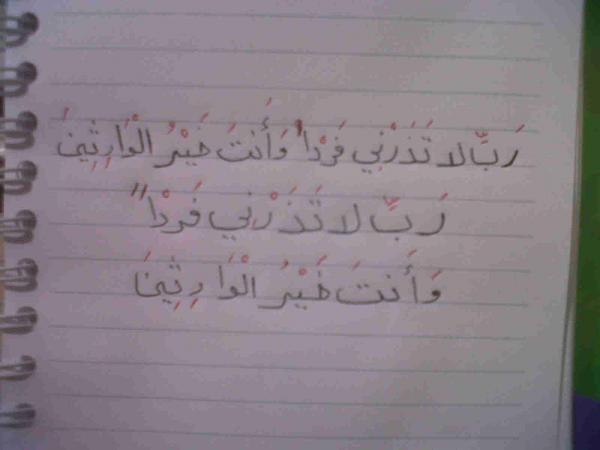 رَبِّ لا تَذَرْنِي فَرْدًا وَأَنتَ خَيْرُ الْوَارِثِينَ
رَبِّ لا تَذَرْنِي فَرْدًا
وَأَنتَ خَيْرُ الْوَارِثِينَ